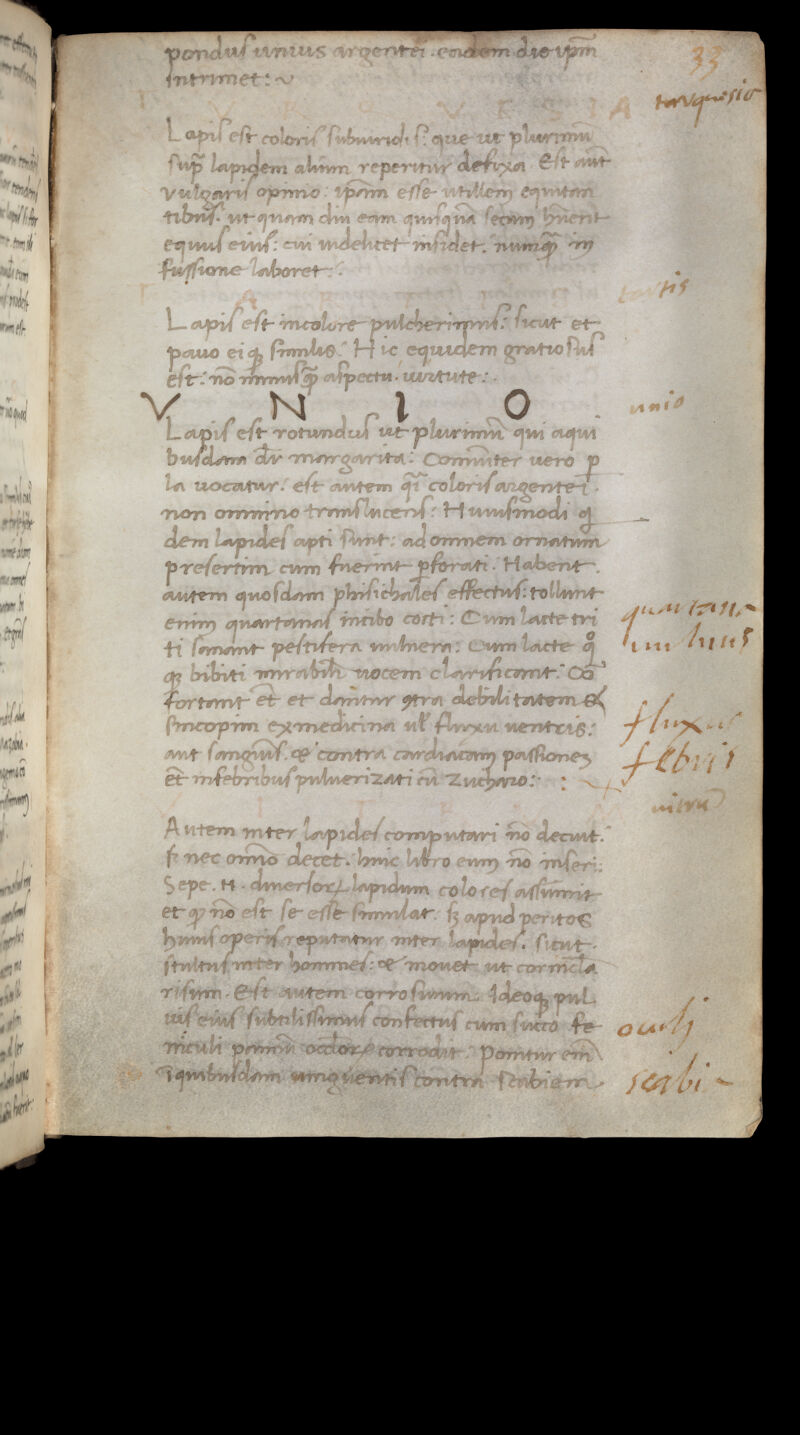 33
pondus unius argentei. eadem die ipm̄
intrimet:
turquesia
Lapis est coloris subuiridis: que ut plurimū
sup̄ lapidem alium reperitur defixa. Est aūt
vulgaris opinio: ipām esse utillem equitan
tibus. ut quam diu eam quisquā secum hūerit
equus eius: cui uidelicet insidet. numq̄ in
fussione laboret:
Lapis est incolore pulcherimus: sicut et
pauo eiq̨ similis. Hic equidem gratiosus
est: nō minusq̄ aspectu. uirtute:
V N I O
unio
Lapis est rotundus ut plurimū qui aqui
busdam dr̄ margarita: Comūiter uero p̲
la uocatur. est autem q̄i coloris argentei.
non omnino translucens: Huiusmodi q̄
dem lapides apti sunt: ad omnem ornatum
presertim cum fuerint p̲forati. Habent
autem quosdam phisichales effectus: tollunt
enim quartanas incibo cocti: Cum lacte tri
quartana
ti sanant pestifera uulnera: Cum lacte q̊
uulnus
q̨ bibiti mirabilr̄ uocem clarificant. Cō
fortant et̄ et dantur ꝯtra debilitatem &
sincopim exmedicina ul̄ fluxu uentris:
fluxus
aut sanguis. & contra cardiacam passionem
febris
et̄ infebribus puluerizati cū zucharo:
uitrū
Autem inter lapides computari nō decuit.
s; nec omīo decet. huic libro eum nō inseri:
Sepe. N. diuersoꝝ lapidum colores assumit
et qd̄ nō est se esse simulat: s; apud peritos
huius operis reputatur inter lapides. sicut.
stultus inter homines: & mouet ut cornicla
risum. Est autem corrosiuum. Ideoq̨ pul
uis eius subtilissimus confectus cum succo fe
oculi
niculi pannū oculoꝝ corrodit. Ponitur enī
īquibusdam unguentis contra scabiem
scabi